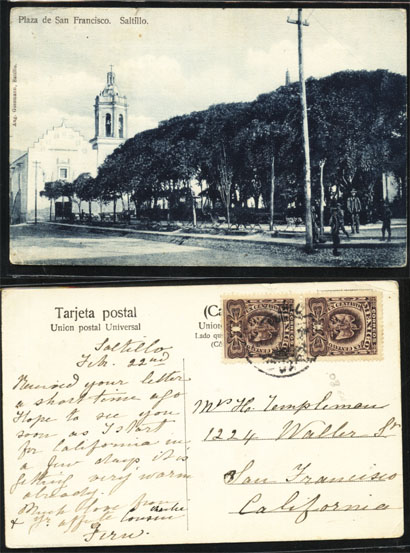 Plaza de San Francisco. Saltillo.
Tarjeta postal
Union postal Universal
(Ca
Union
Lado qu
(Cô
Saltillo
Feb. 22nd
Received your letter
a short time ago
Hope to see you
soon as I start
for California in
a few days it is
getting very warm
already.
Much love from
& yr aff cousin
Mrs H. Templeman
1224 Waller St
San Francisco
California